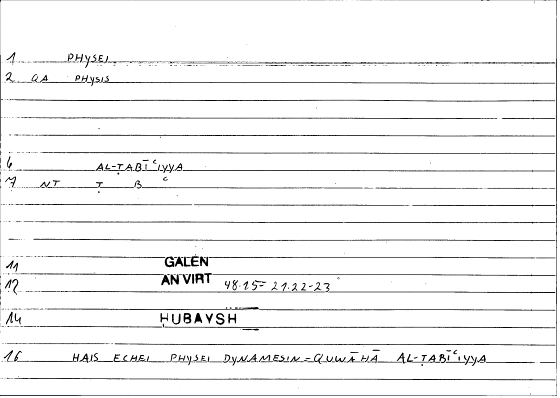 1 PHYSEI
2 QA PHYSIS
6 AL-ṬABĪʿIYYA
7 NT Ṭ B ʿ
11 GALEN
12 AN VIRT 48.15 = 21.22-23
14 ḤUBAYSH
16 HAIS ECHEI PHYSEI DYNAMESIN = QUWĀHĀ AL-ṬABĪʿIYYA